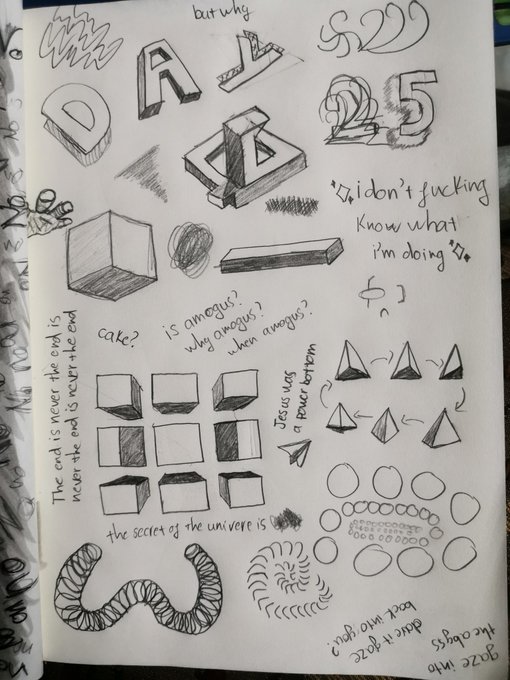 but why
DAY
25
i don't fucking
know what
i'm doing
The end is never the end is
never the end is never the end
cake?
is amogus?
why amogus?
when amogus?
Jesus was
a power bottom
the secret of the univere is
gaze into
the abyss
does it gaze
back into you?